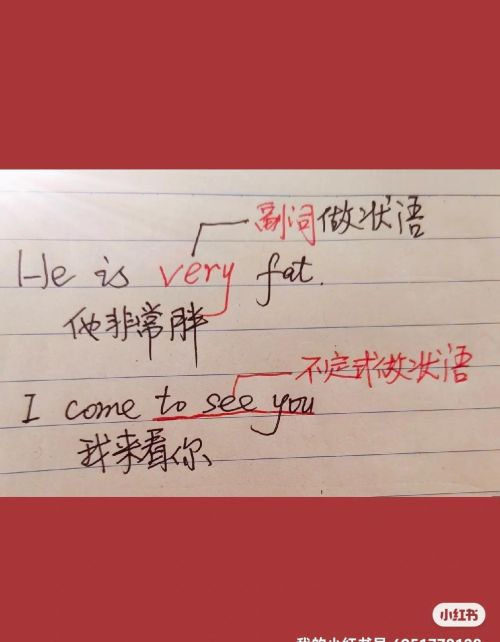 副词做状语
He is very fat.
他非常胖
不定式做状语
I come to see you
我来看你
小红书